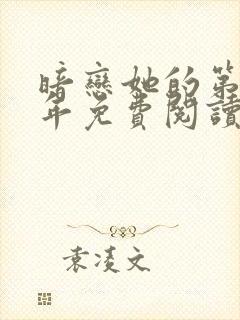 暗戀她的第
年免費閱讀
袁凌文